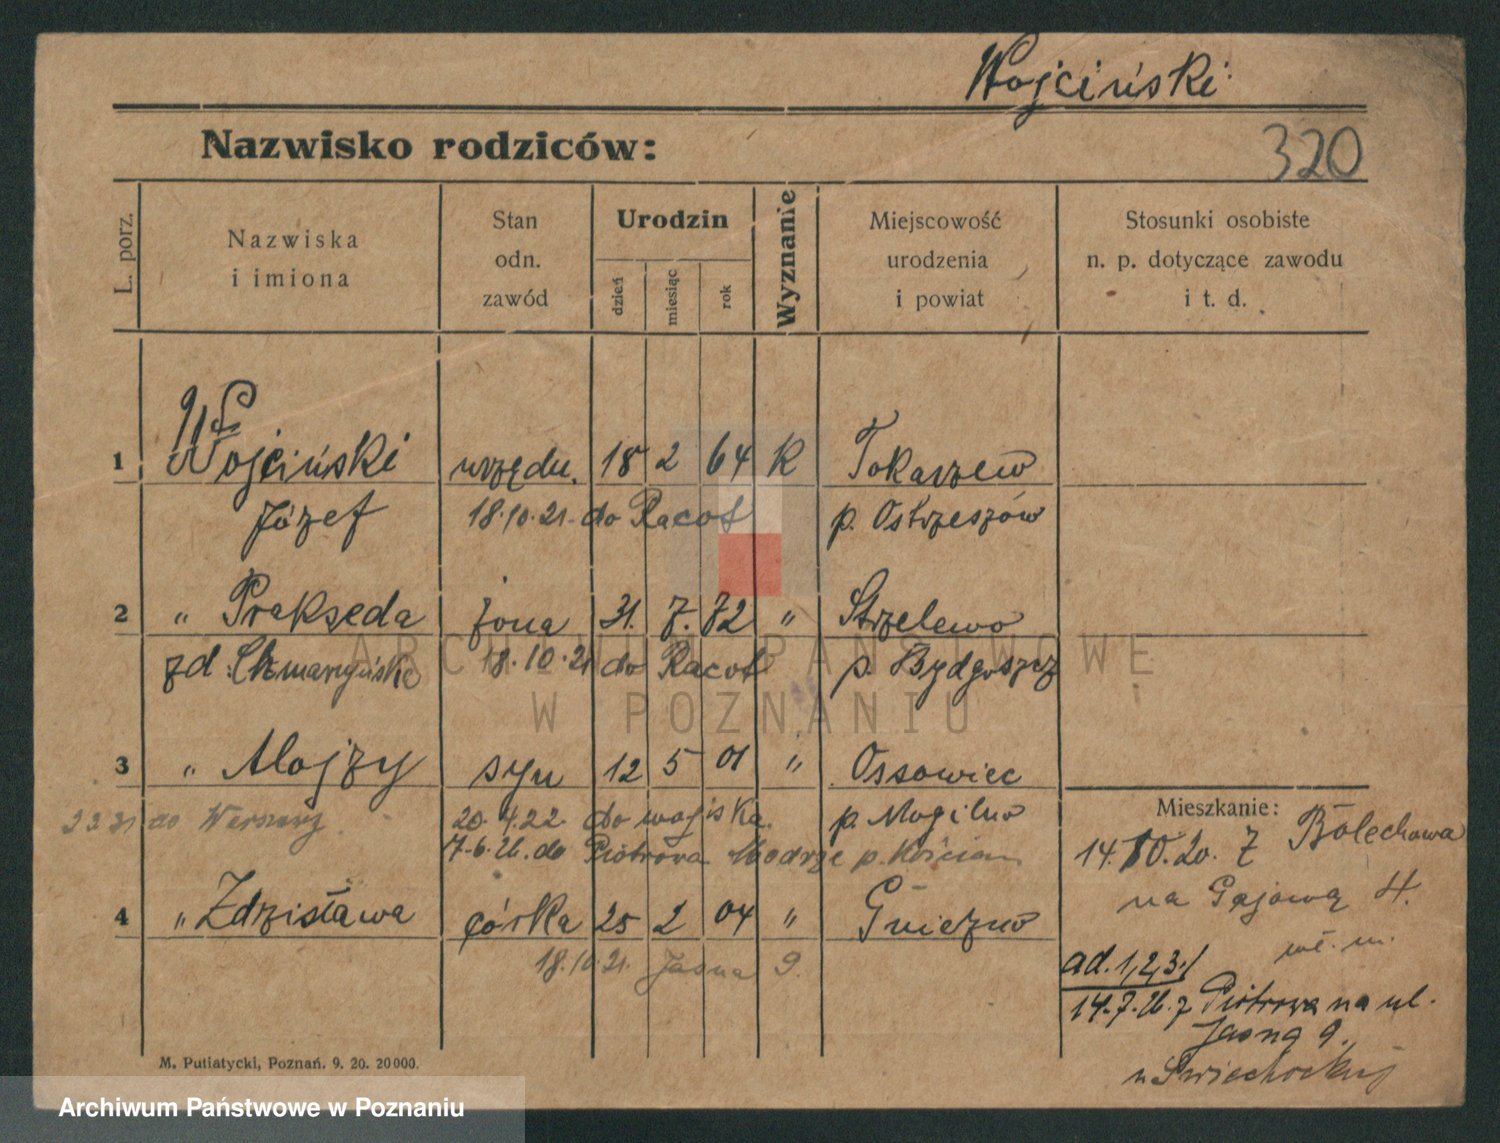 Wojciński
Nazwisko rodziców:
320
L. porz.
Nazwiska
i imiona
Stan
odn.
zawód
Urodzin
dzień
miesiąc
rok
Wyznanie
Miejscowość
urodzenia
i powiat
Stosunki osobiste
n. p. dotyczące zawodu
i t. d.
1 Wojciński urzędn. 18 2 64 K Tokarzew
Józef 18.10.21. do Racot p. Ostrzeszów
2 " Prakseda żona 31. 7. 72 " Strzelewo
zd. 18.10.21 do Racot p. Bydgoszcz
3 " Alojzy syn 12 5 01 " Ossowiec
do 20.4.22. do wojska. p. Mogilno
do Piotrowa Modrze p. Kościan
4 " Zdzisława córka 25 2 04 " Gniezno
18.10.21. Jasna 9.
Mieszkanie:
14.10.20. z Bolechowa
na Gajową 4.
ad. 1,2,3./
z Piotrowa na ul.
Jasną 9.
M. Putiatycki, Poznań. 9. 20. 20000.
ARCHIWUM PAŃSTWOWE
W POZNANIU
Archiwum Państwowe w Poznaniu